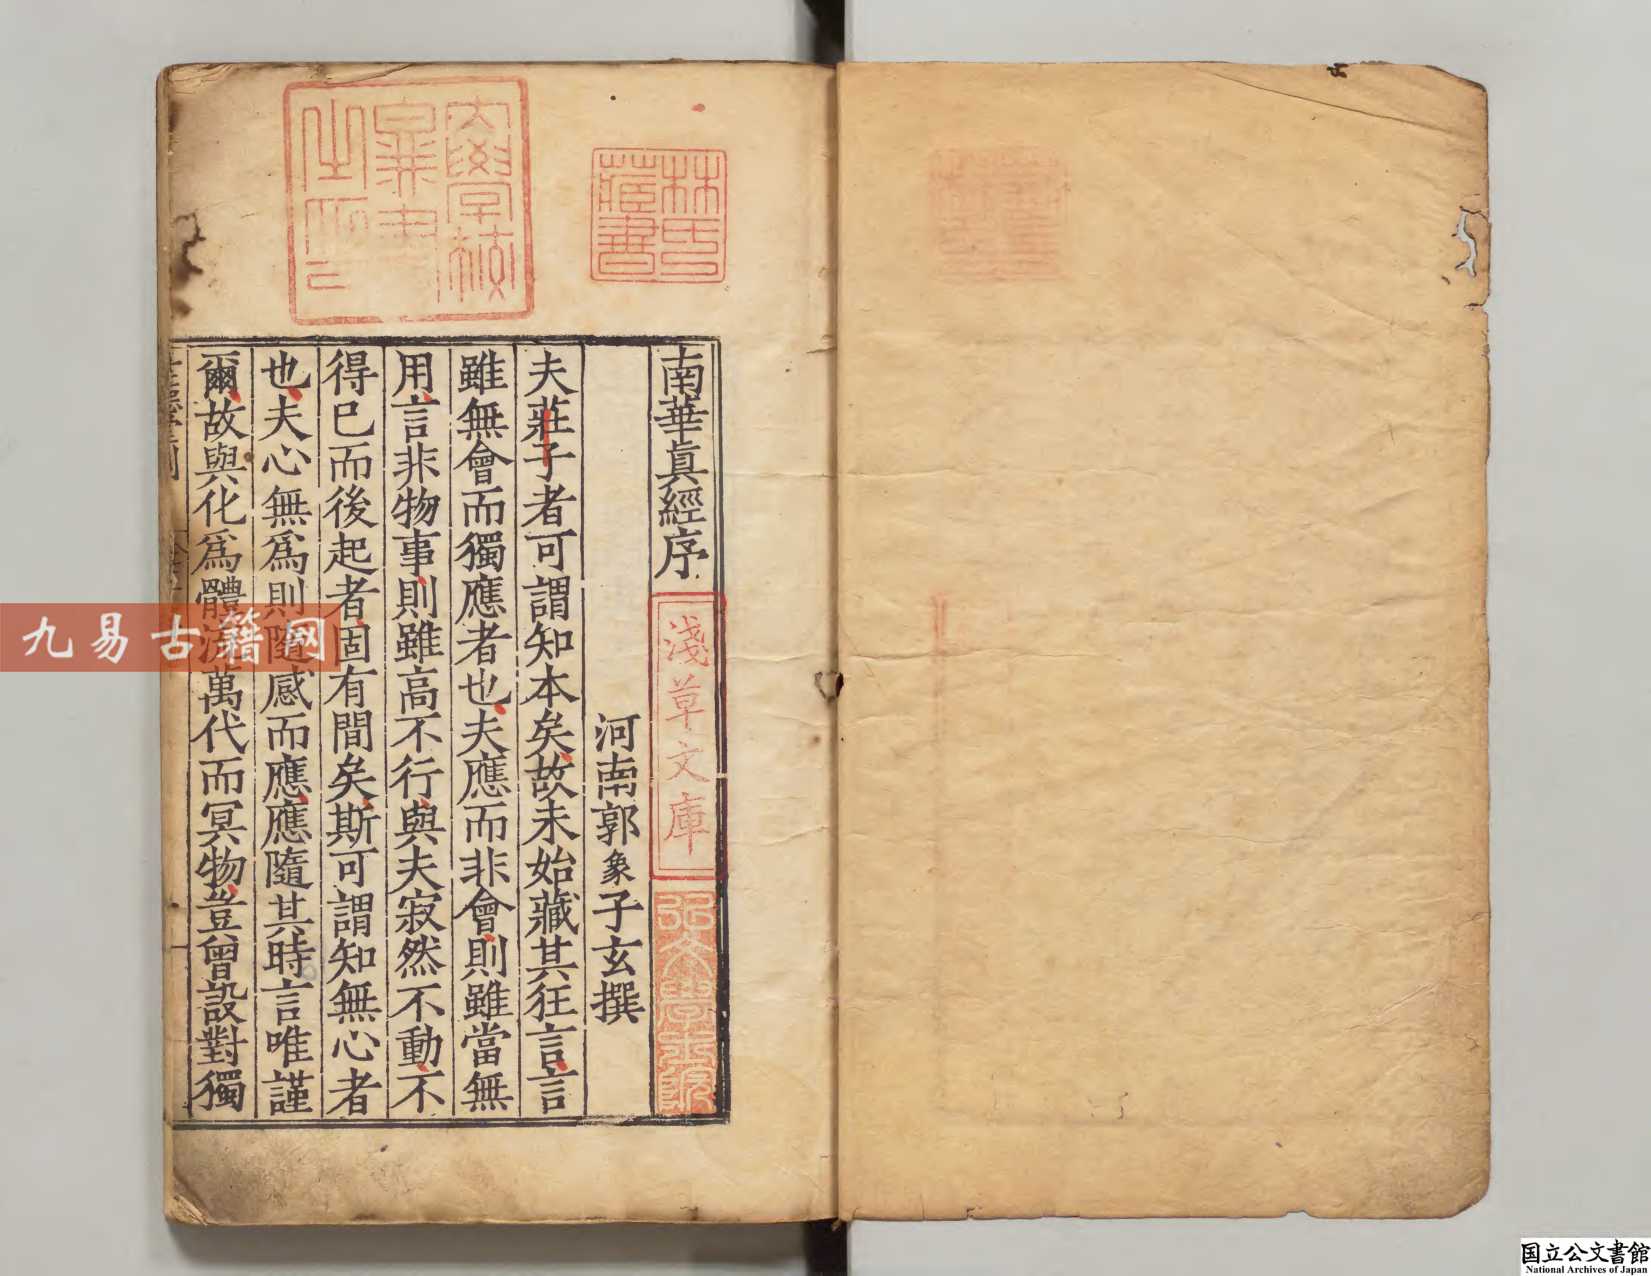 南華真經序
河南郭象子玄撰
夫莊子者可謂知本矣故未始藏其狂言言
雖無會而獨應者也夫應而非會則雖當無
用言非物事則雖高不行與夫寂然不動不
得已而後起者固有間矣斯可謂知無心者
也夫心無爲則隨感而應應隨其時言唯謹
爾故與化爲體流萬代而冥物豈曾設對獨
淺草文庫
弘文學士院
林氏藏書
九易古籍网
国立公文書館
National Archives of Japan